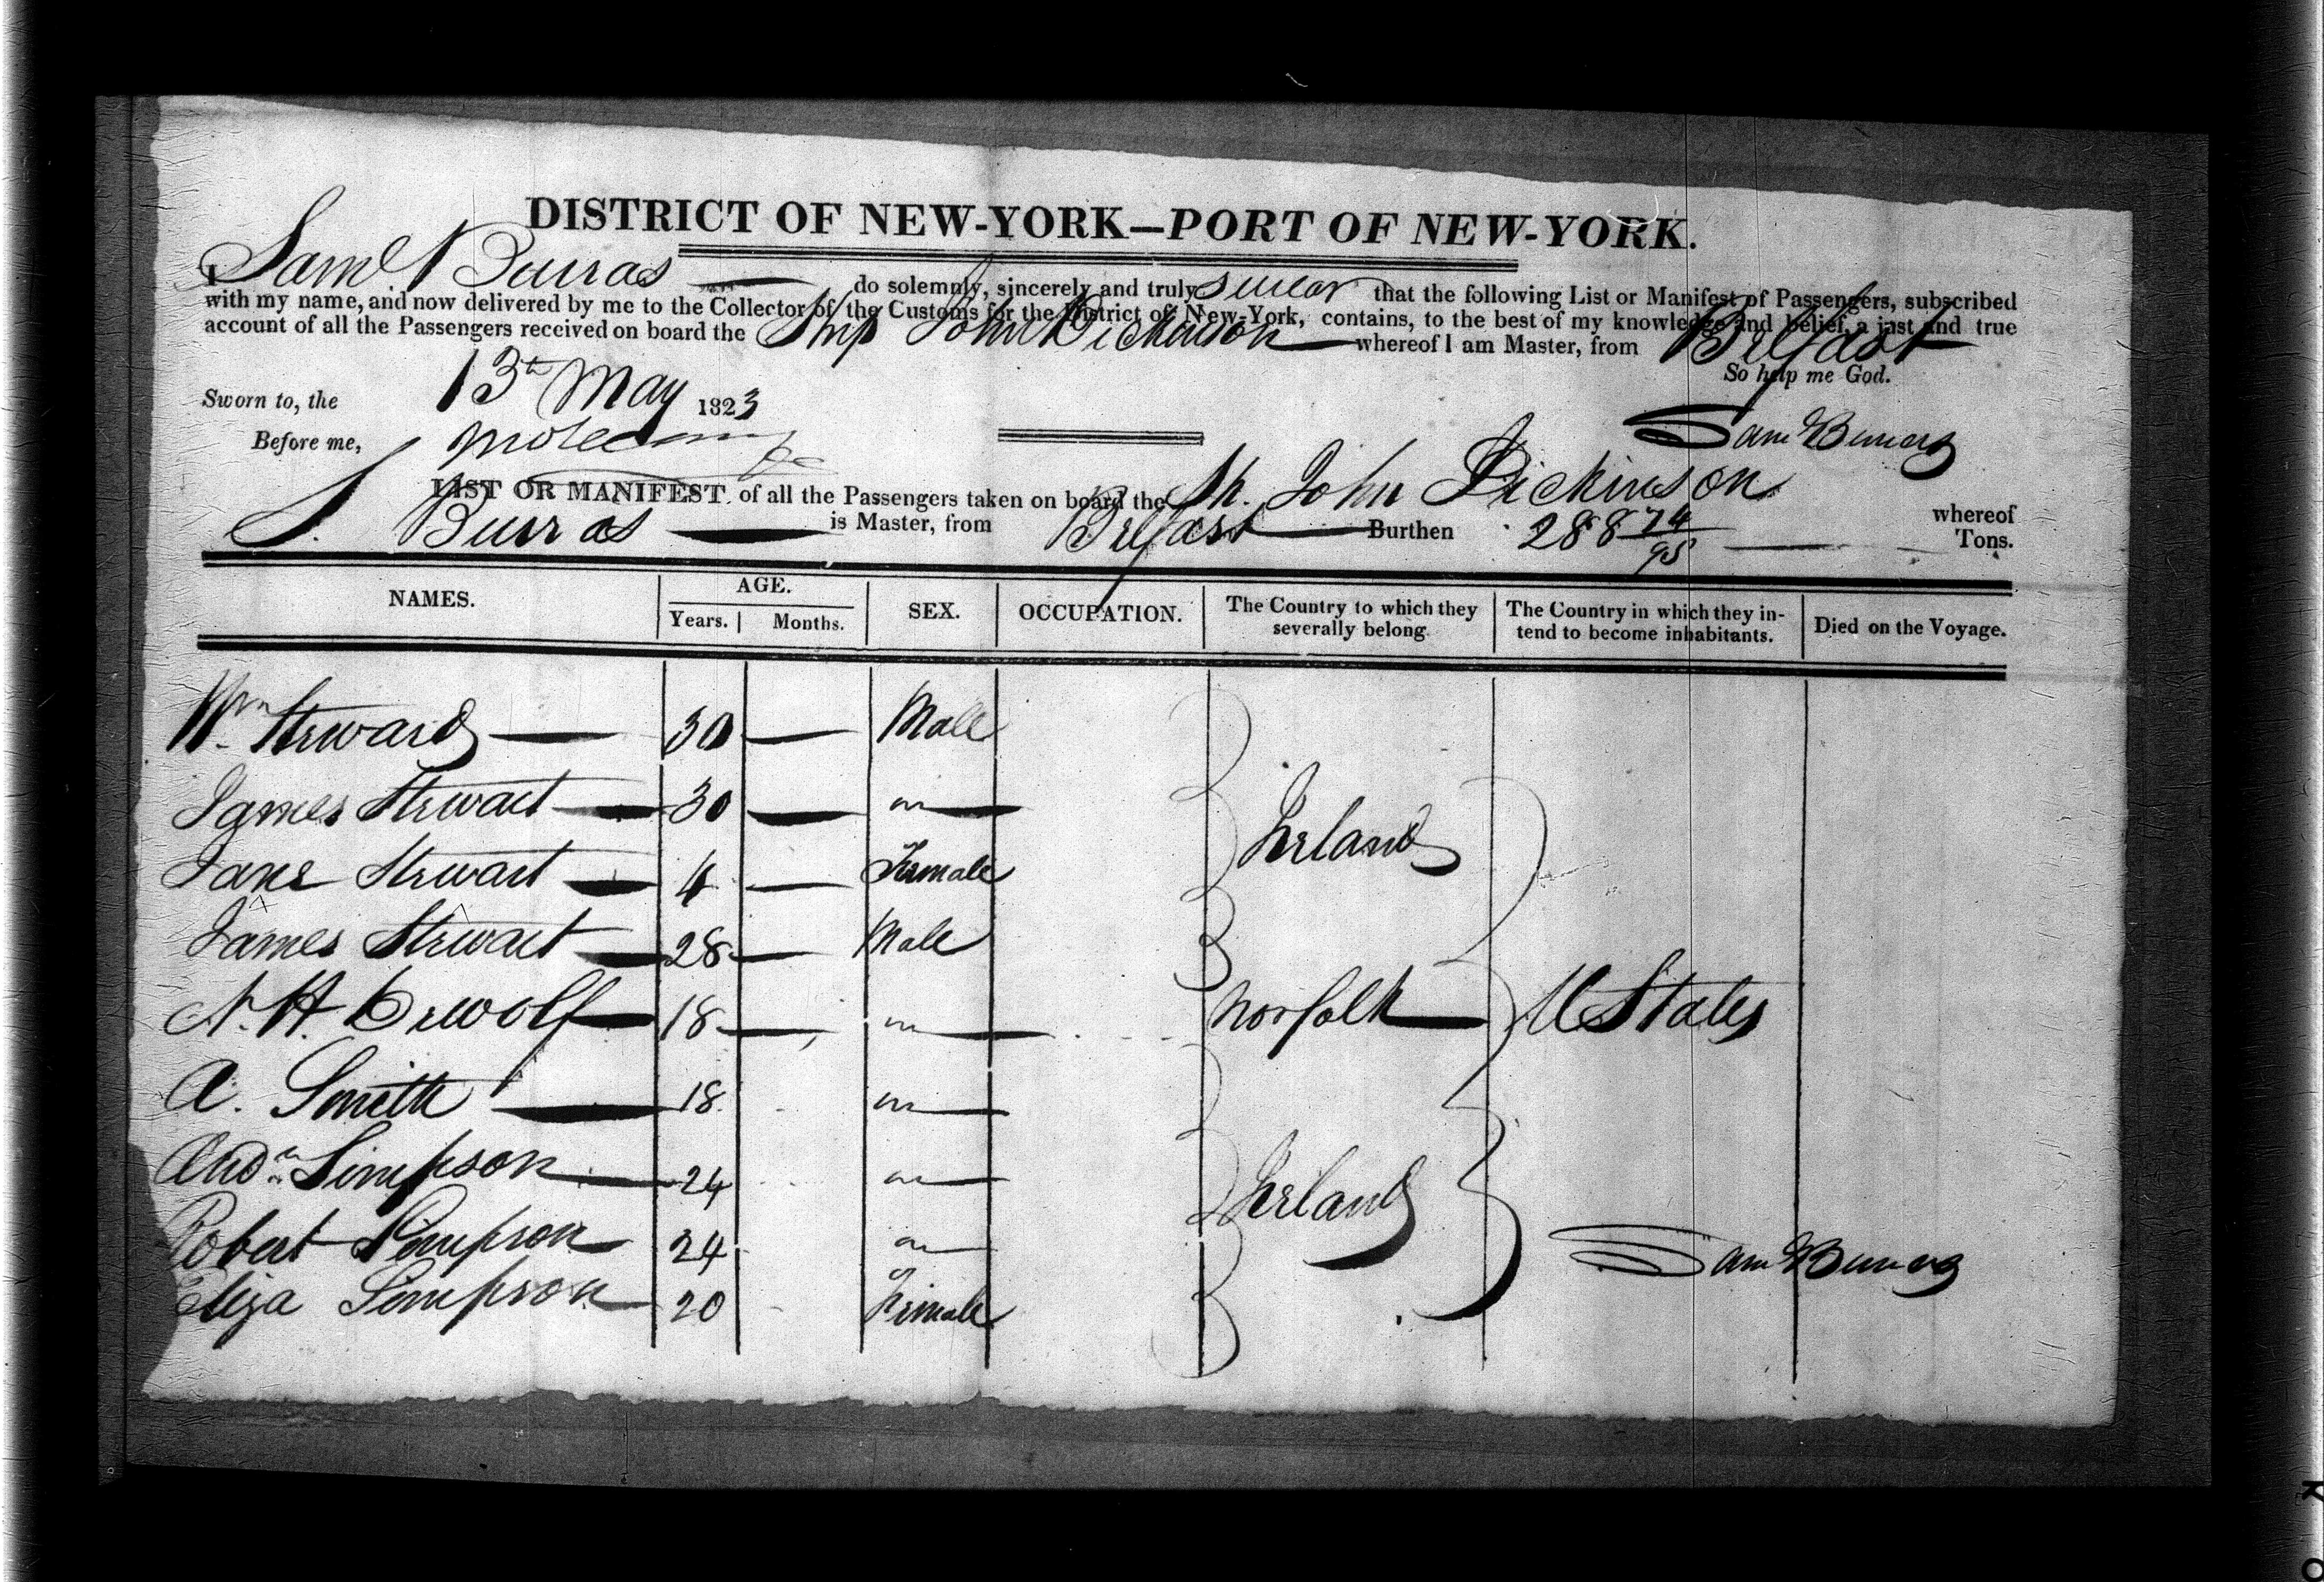 DISTRICT OF NEW-YORK—PORT OF NEW-YORK.
I Saml Burras do solemnly, sincerely and truly swear that the following List or Manifest of Passengers, subscribed
with my name, and now delivered by me to the Collector of the Customs for the District of New-York, contains, to the best of my knowledge and belief, a just and true
account of all the Passengers received on board the Ship John Dickinson whereof I am Master, from Belfast
So help me God.
Sworn to, the 13th May 1823
Before me,
Sam Burras
LIST OR MANIFEST of all the Passengers taken on board the Sh. John Dickinson whereof
S. Burras is Master, from Belfast Burthen 288 74/95 Tons.
NAMES. AGE. Years. Months. SEX. OCCUPATION. The Country to which they severally belong. The Country in which they intend to become inhabitants. Died on the Voyage.
Wm Steward — 30 — Male
James Stewart — 30 — "
Ireland
Jane Stewart — 4 — Female
James Stewart — 28 — Male
N. H. Dewolf — 18 — " Norfolk — U States
A. Smith — 18 "
Andw Simpson — 24 "
Ireland
Robert Simpson 24 "
Sam Burras
Eliza Simpson 20 Female